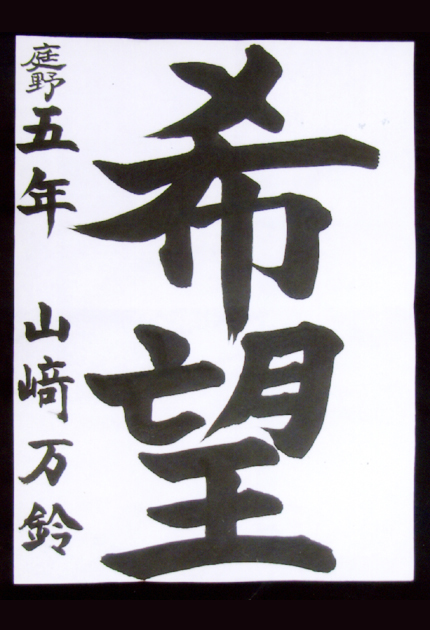 希望
庭野五年 山﨑万鈴